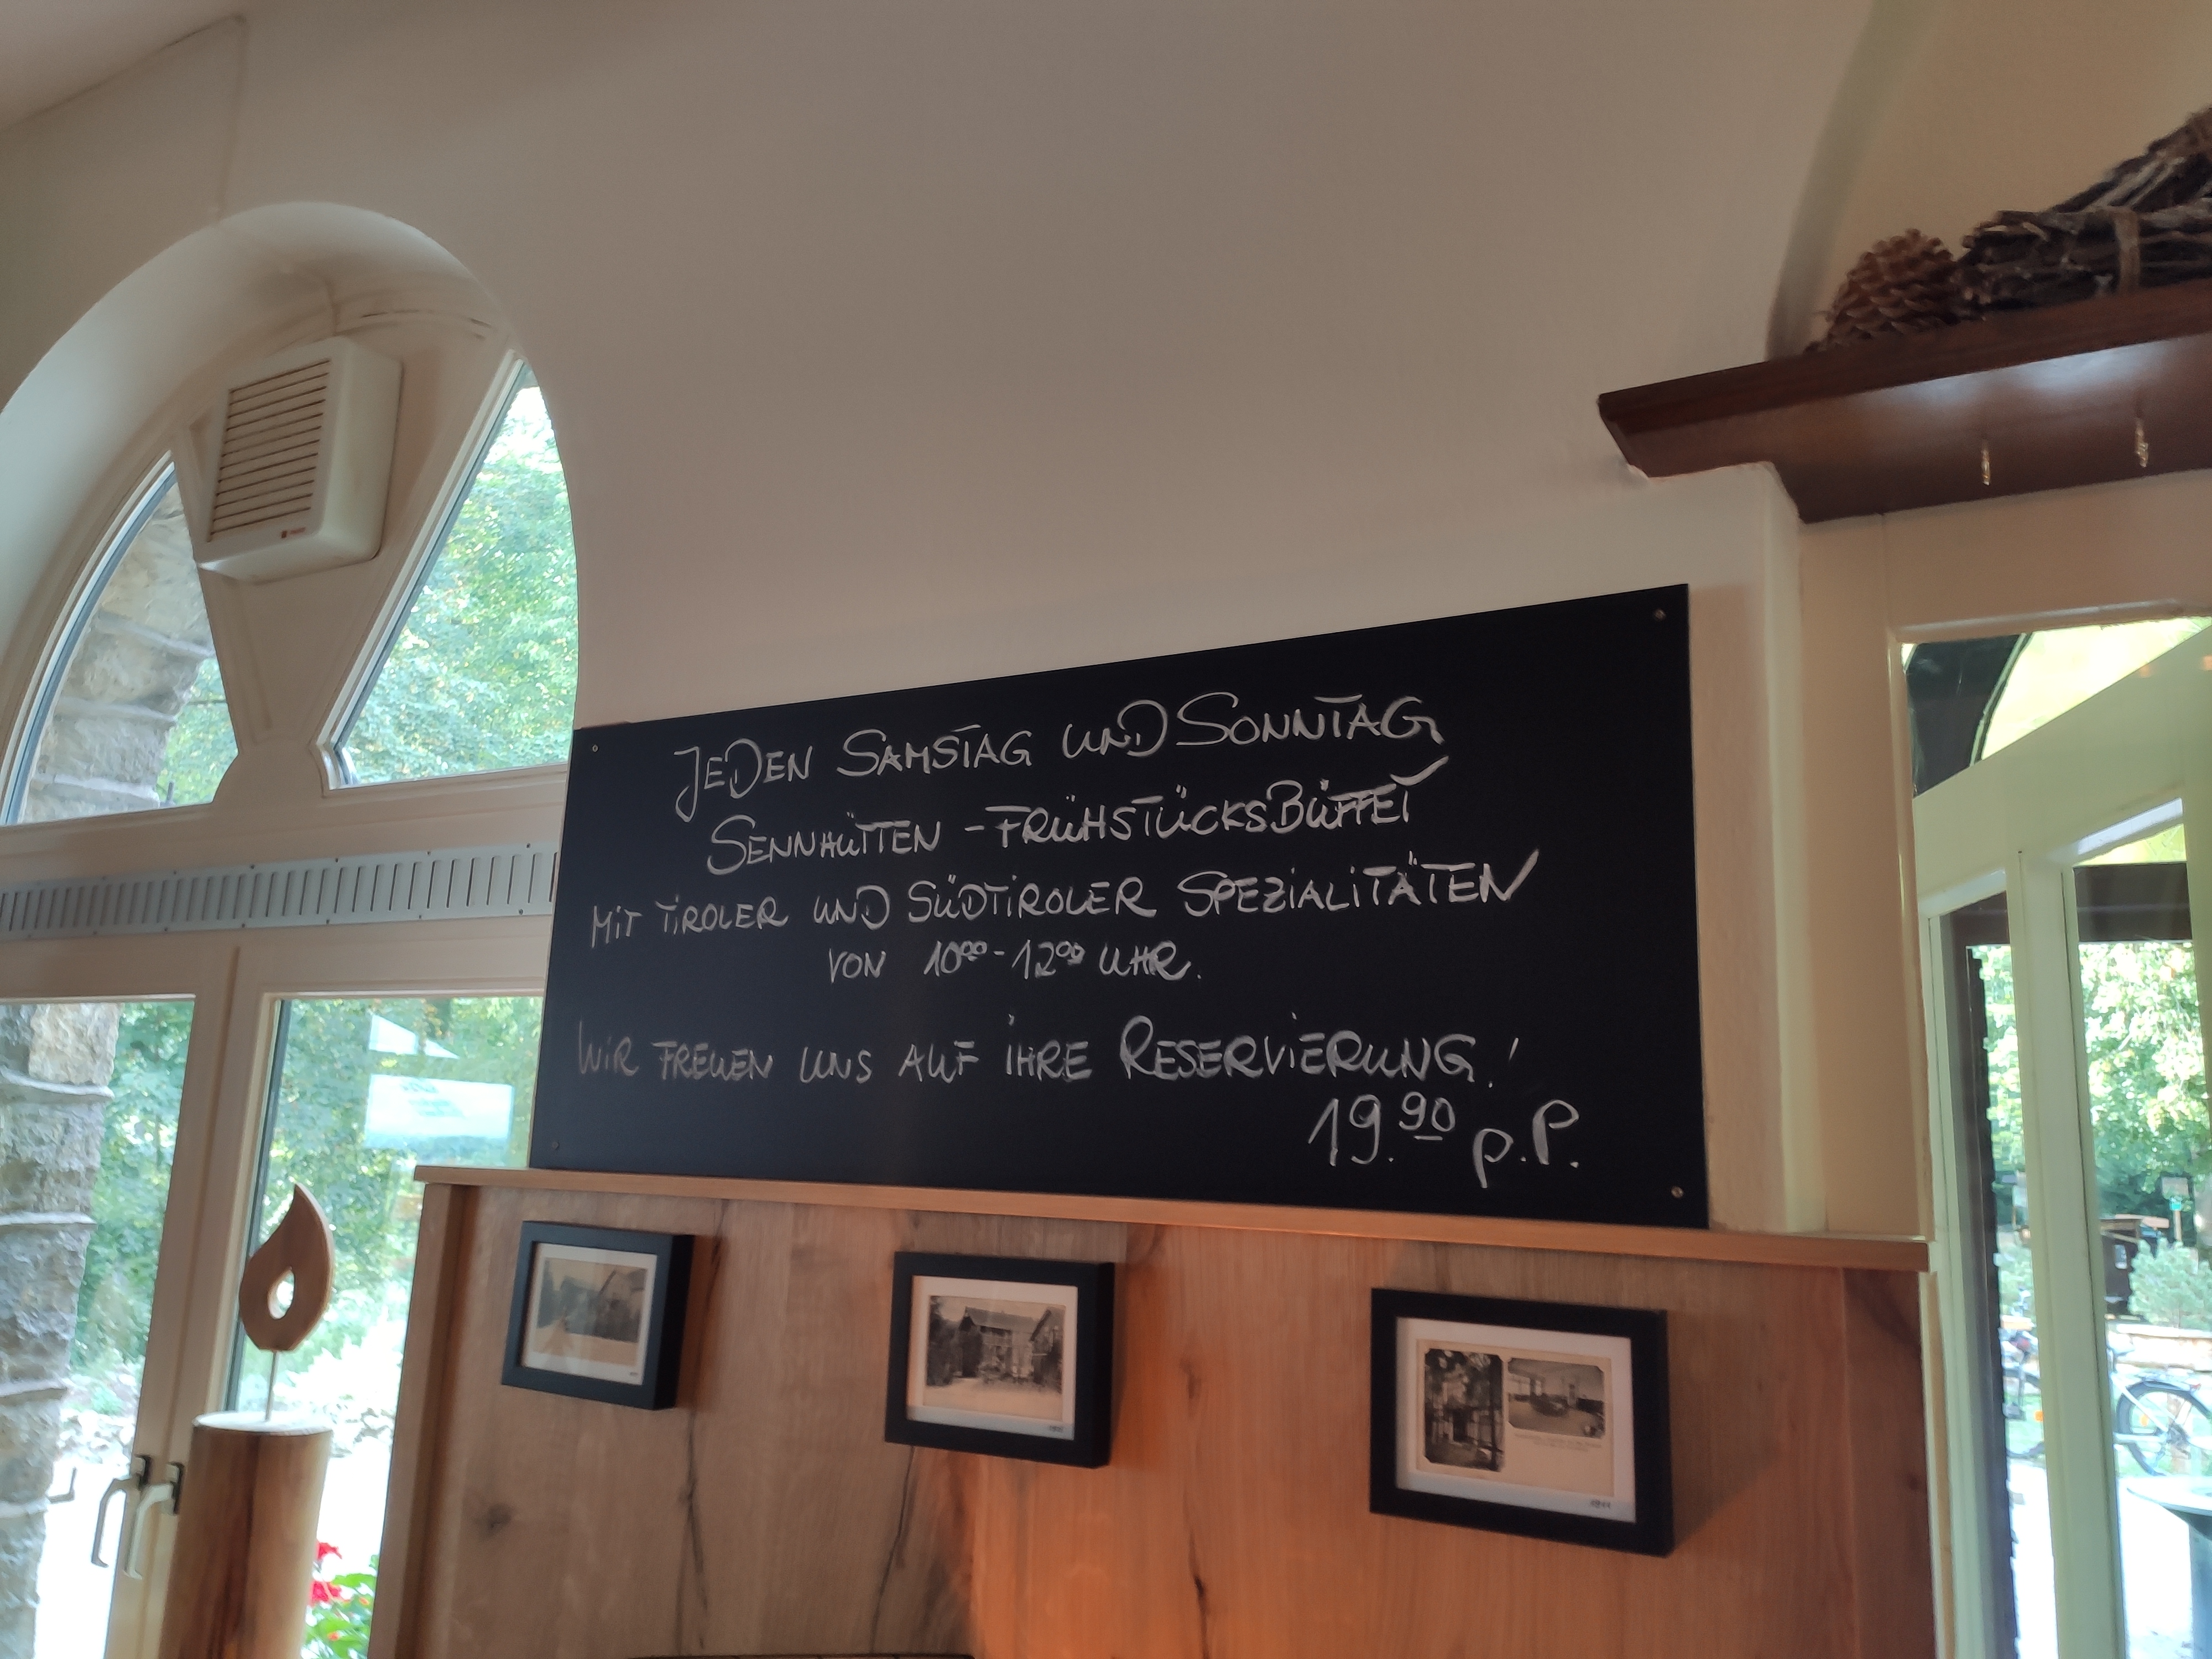 JEDEN SAMSTAG UND SONNTAG
SENNHÜTTEN-FRÜHSTÜCKSBÜFFET
MIT TIROLER UND SÜDTIROLER SPEZIALITÄTEN
VON 10⁰⁰-12⁰⁰ UHR.
WIR FREUEN UNS AUF IHRE RESERVIERUNG!
19.90 p.P.